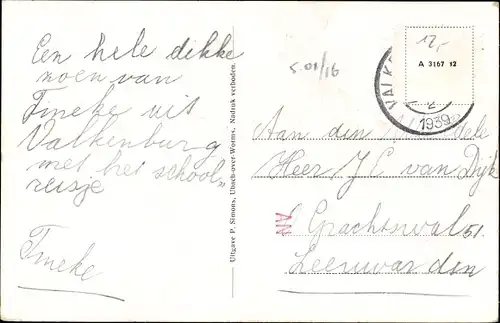 Een hele dikke
zoen van
Tineke uit
Valkenburg
met het school„
reisje
Tineke
Uitgave P. Simons, Ubach-over-Worms. Nadruk verboden.
5.01/16
12,-
A 3167 12
VALK
1939
Aan den
Heer J.C. van Dijk
NV
Grachtswal 51.
Leeuwarden